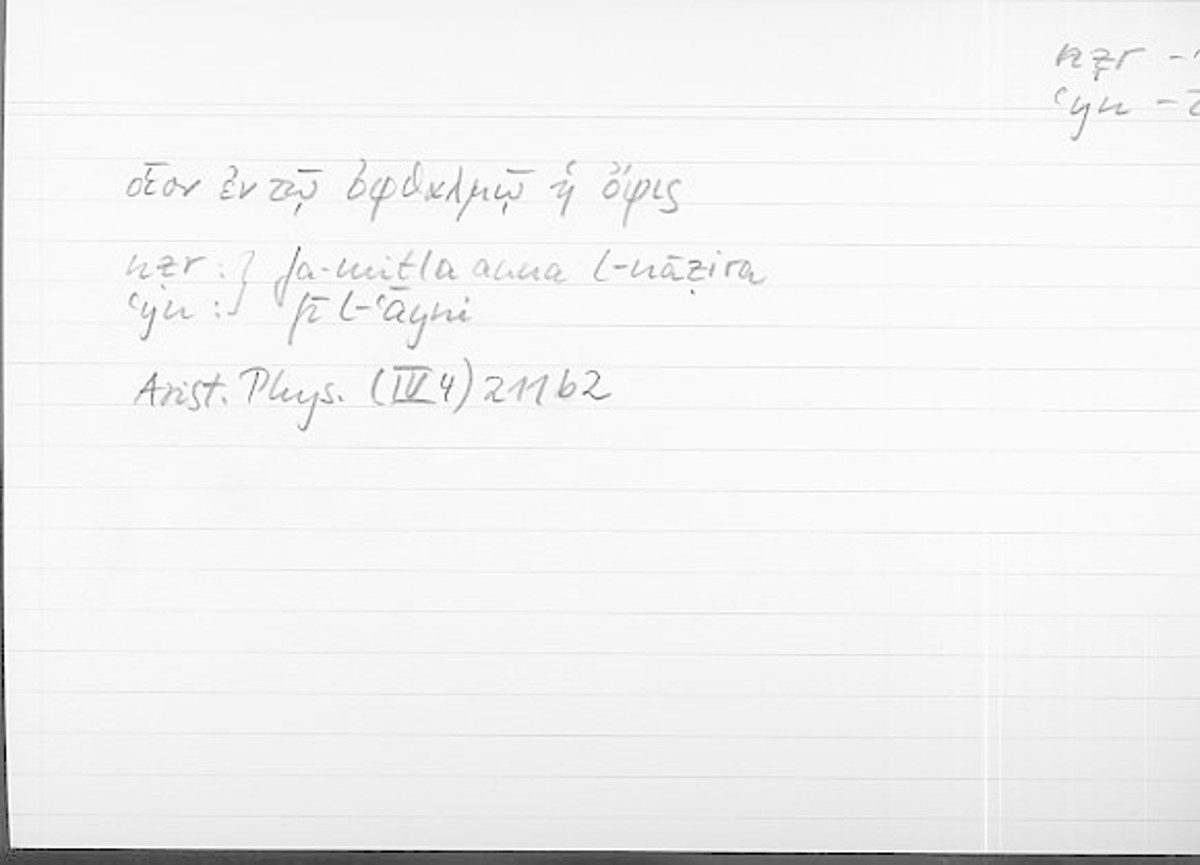 nẓr -
ʿyn -
οἷον ἐν τῷ ὀφθαλμῷ ἡ ὄψις
nẓr : } fa-mitla anna l-nāẓira
ʿyn : } fī l-ʿayni
Arist. Phys. (IV 4) 211b2